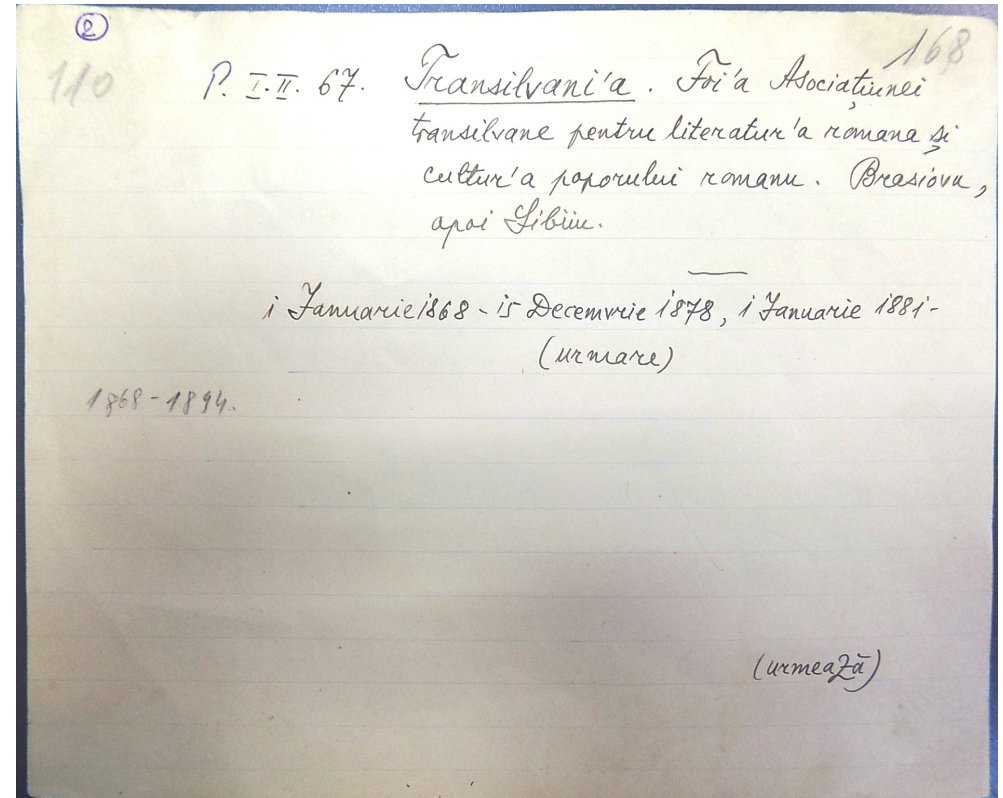 2
168
110
P. I.II. 67. Transilvani'a. Foi'a Asociațiunei
transilvane pentru literatur'a romana și
cultur'a poporului romanu. Brasiovu,
apoi Sibiiu.
1 Januarie 1868 - 15 Decemvrie 1878, 1 Januarie 1881-
(urmare)
1868-1894.
(urmează)